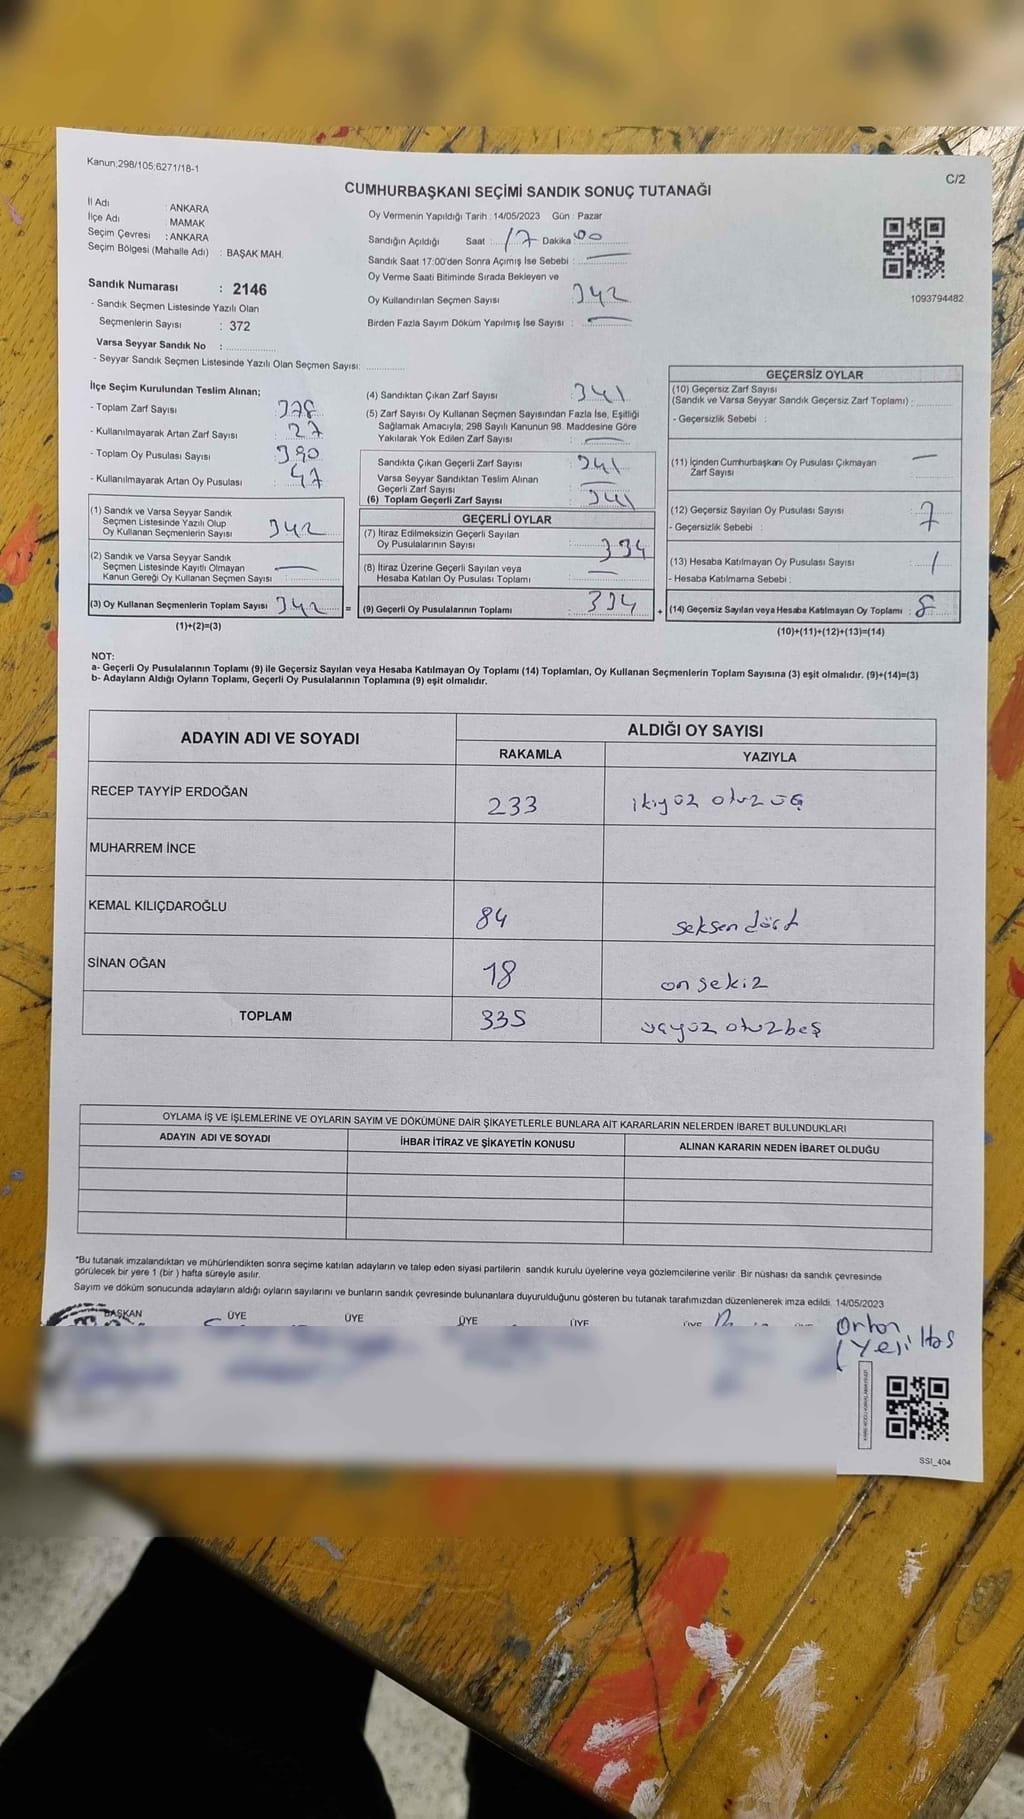 Kanun:298/105;6271/18-1
C/2
CUMHURBAŞKANI SEÇİMİ SANDIK SONUÇ TUTANAĞI
İl Adı : ANKARA
İlçe Adı : MAMAK
Seçim Çevresi : ANKARA
Seçim Bölgesi (Mahalle Adı) : BAŞAK MAH.
Sandık Numarası : 2146
- Sandık Seçmen Listesinde Yazılı Olan
Seçmenlerin Sayısı : 372
Varsa Seyyar Sandık No :
- Seyyar Sandık Seçmen Listesinde Yazılı Olan Seçmen Sayısı:
Oy Vermenin Yapıldığı Tarih : 14/05/2023 Gün : Pazar
Sandığın Açıldığı Saat : 17 Dakika : 00
Sandık Saat 17:00'den Sonra Açımış İse Sebebi : —
Oy Verme Saati Bitiminde Sırada Bekleyen ve
Oy Kullandırılan Seçmen Sayısı : 342
Birden Fazla Sayım Döküm Yapılmış İse Sayısı : —
1093794482
İlçe Seçim Kurulundan Teslim Alınan;
- Toplam Zarf Sayısı : 378
- Kullanılmayarak Artan Zarf Sayısı : 27
- Toplam Oy Pusulası Sayısı : 390
- Kullanılmayarak Artan Oy Pusulası : 47
(1) Sandık ve Varsa Seyyar Sandık
Seçmen Listesinde Yazılı Olup
Oy Kullanan Seçmenlerin Sayısı : 342
(2) Sandık ve Varsa Seyyar Sandık
Seçmen Listesinde Kayıtlı Olmayan
Kanun Gereği Oy Kullanan Seçmen Sayısı : —
(3) Oy Kullanan Seçmenlerin Toplam Sayısı : 342 =
(1)+(2)=(3)
(4) Sandıktan Çıkan Zarf Sayısı : 341
(5) Zarf Sayısı Oy Kullanan Seçmen Sayısından Fazla İse, Eşitliği
Sağlamak Amacıyla; 298 Sayılı Kanunun 98. Maddesine Göre
Yakılarak Yok Edilen Zarf Sayısı : —
Sandıkta Çıkan Geçerli Zarf Sayısı : 341
Varsa Seyyar Sandıktan Teslim Alınan
Geçerli Zarf Sayısı : —
(6) Toplam Geçerli Zarf Sayısı : 341
GEÇERLİ OYLAR
(7) İtiraz Edilmeksizin Geçerli Sayılan
Oy Pusulalarının Sayısı : 334
(8) İtiraz Üzerine Geçerli Sayılan veya
Hesaba Katılan Oy Pusulası Toplamı : —
(9) Geçerli Oy Pusulalarının Toplamı : 334 +
GEÇERSİZ OYLAR
(10) Geçersiz Zarf Sayısı
(Sandık ve Varsa Seyyar Sandık Geçersiz Zarf Toplamı) :
- Geçersizlik Sebebi :
(11) İçinden Cumhurbaşkanı Oy Pusulası Çıkmayan
Zarf Sayısı : —
(12) Geçersiz Sayılan Oy Pusulası Sayısı : 7
- Geçersizlik Sebebi :
(13) Hesaba Katılmayan Oy Pusulası Sayısı : 1
- Hesaba Katılmama Sebebi :
(14) Geçersiz Sayılan veya Hesaba Katılmayan Oy Toplamı : 8
(10)+(11)+(12)+(13)=(14)
NOT:
a- Geçerli Oy Pusulalarının Toplamı (9) ile Geçersiz Sayılan veya Hesaba Katılmayan Oy Toplamı (14) Toplamları, Oy Kullanan Seçmenlerin Toplam Sayısına (3) eşit olmalıdır. (9)+(14)=(3)
b- Adayların Aldığı Oyların Toplamı, Geçerli Oy Pusulalarının Toplamına (9) eşit olmalıdır.
ADAYIN ADI VE SOYADI
ALDIĞI OY SAYISI
RAKAMLA YAZIYLA
RECEP TAYYİP ERDOĞAN 233 ikiyüz otuz üç
MUHARREM İNCE
KEMAL KILIÇDAROĞLU 84 seksen dört
SİNAN OĞAN 18 on sekiz
TOPLAM 335 üçyüz otuzbeş
OYLAMA İŞ VE İŞLEMLERİNE VE OYLARIN SAYIM VE DÖKÜMÜNE DAİR ŞİKAYETLERLE BUNLARA AİT KARARLARIN NELERDEN İBARET BULUNDUKLARI
ADAYIN ADI VE SOYADI İHBAR İTİRAZ VE ŞİKAYETİN KONUSU ALINAN KARARIN NEDEN İBARET OLDUĞU
*Bu tutanak imzalandıktan ve mühürlendikten sonra seçime katılan adayların ve talep eden siyasi partilerin sandık kurulu üyelerine veya gözlemcilerine verilir. Bir nüshası da sandık çevresinde
görülecek bir yere 1 (bir ) hafta süreyle asılır.
Sayım ve döküm sonucunda adayların aldığı oyların sayılarını ve bunların sandık çevresinde bulunanlara duyurulduğunu gösteren bu tutanak tarafımızdan düzenlenerek imza edildi. 14/05/2023
BAŞKAN ÜYE ÜYE ÜYE ÜYE
Orhan
Yeşiltas
SSI_404